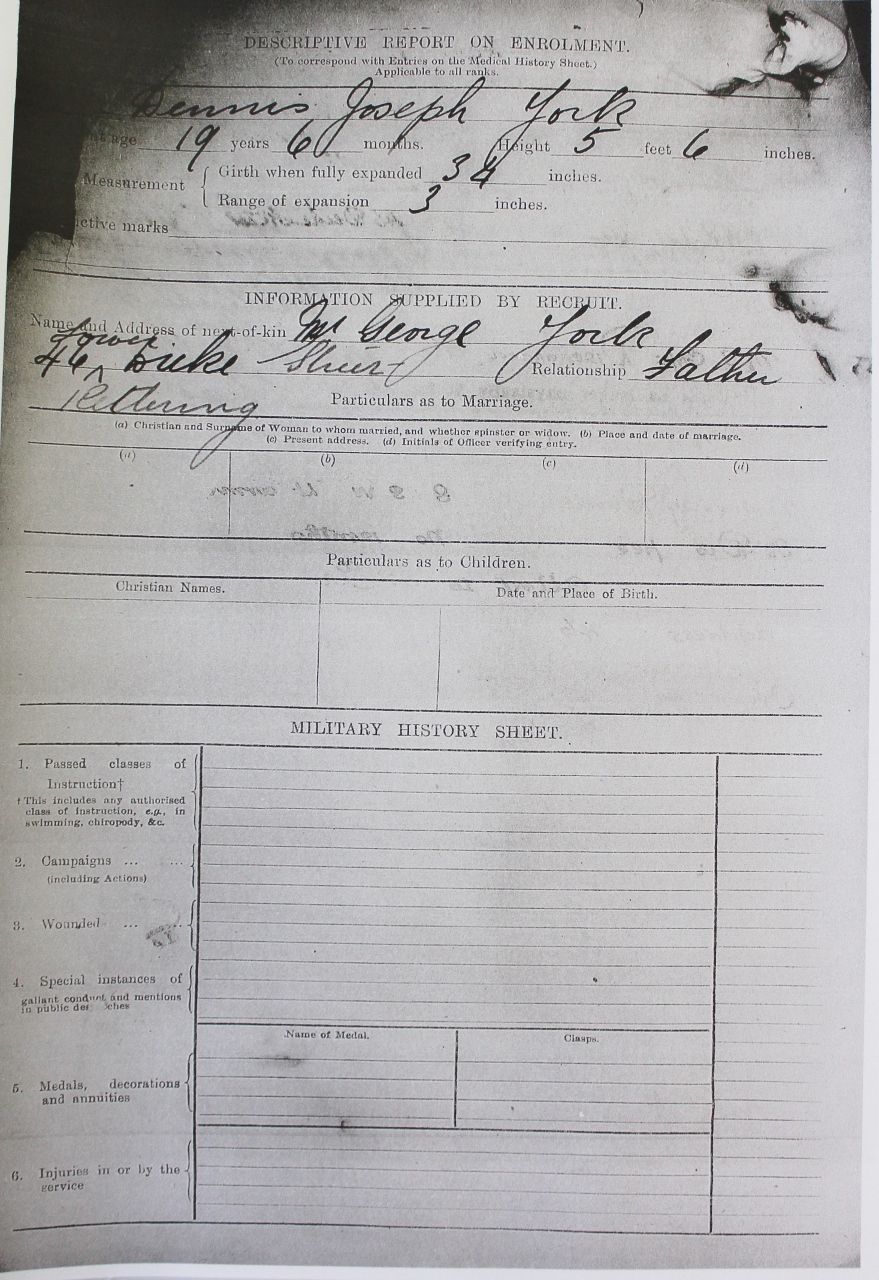 DESCRIPTIVE REPORT ON ENROLMENT.
(To correspond with Entries on the Medical History Sheet.)
Applicable to all ranks.
Dennis Joseph York
age 19 years 6 months. Height 5 feet 6 inches.
Measurement { Girth when fully expanded 34 inches.
Range of expansion 3 inches.
ctive marks
INFORMATION SUPPLIED BY RECRUIT.
Name and Address of next-of-kin Mr George York
Lower
46 Duke Relationship Father
Kettering Particulars as to Marriage.
(a) Christian and Surname of Woman to whom married, and whether spinster or widow. (b) Place and date of marriage.
(c) Present address. (d) Initials of Officer verifying entry.
(a) (b) (c) (d)
Particulars as to Children.
Christian Names. Date and Place of Birth.
MILITARY HISTORY SHEET.
1. Passed classes of
Instruction†
†This includes any authorised
class of instruction, e.g., in
swimming, chiropody, &c.
2. Campaigns ... ...
(including Actions)
3. Wounded ... ...
4. Special instances of
gallant conduct and mentions
in public des ches
Name of Medal. Clasps.
5. Medals, decorations
and annuities
6. Injuries in or by the
service